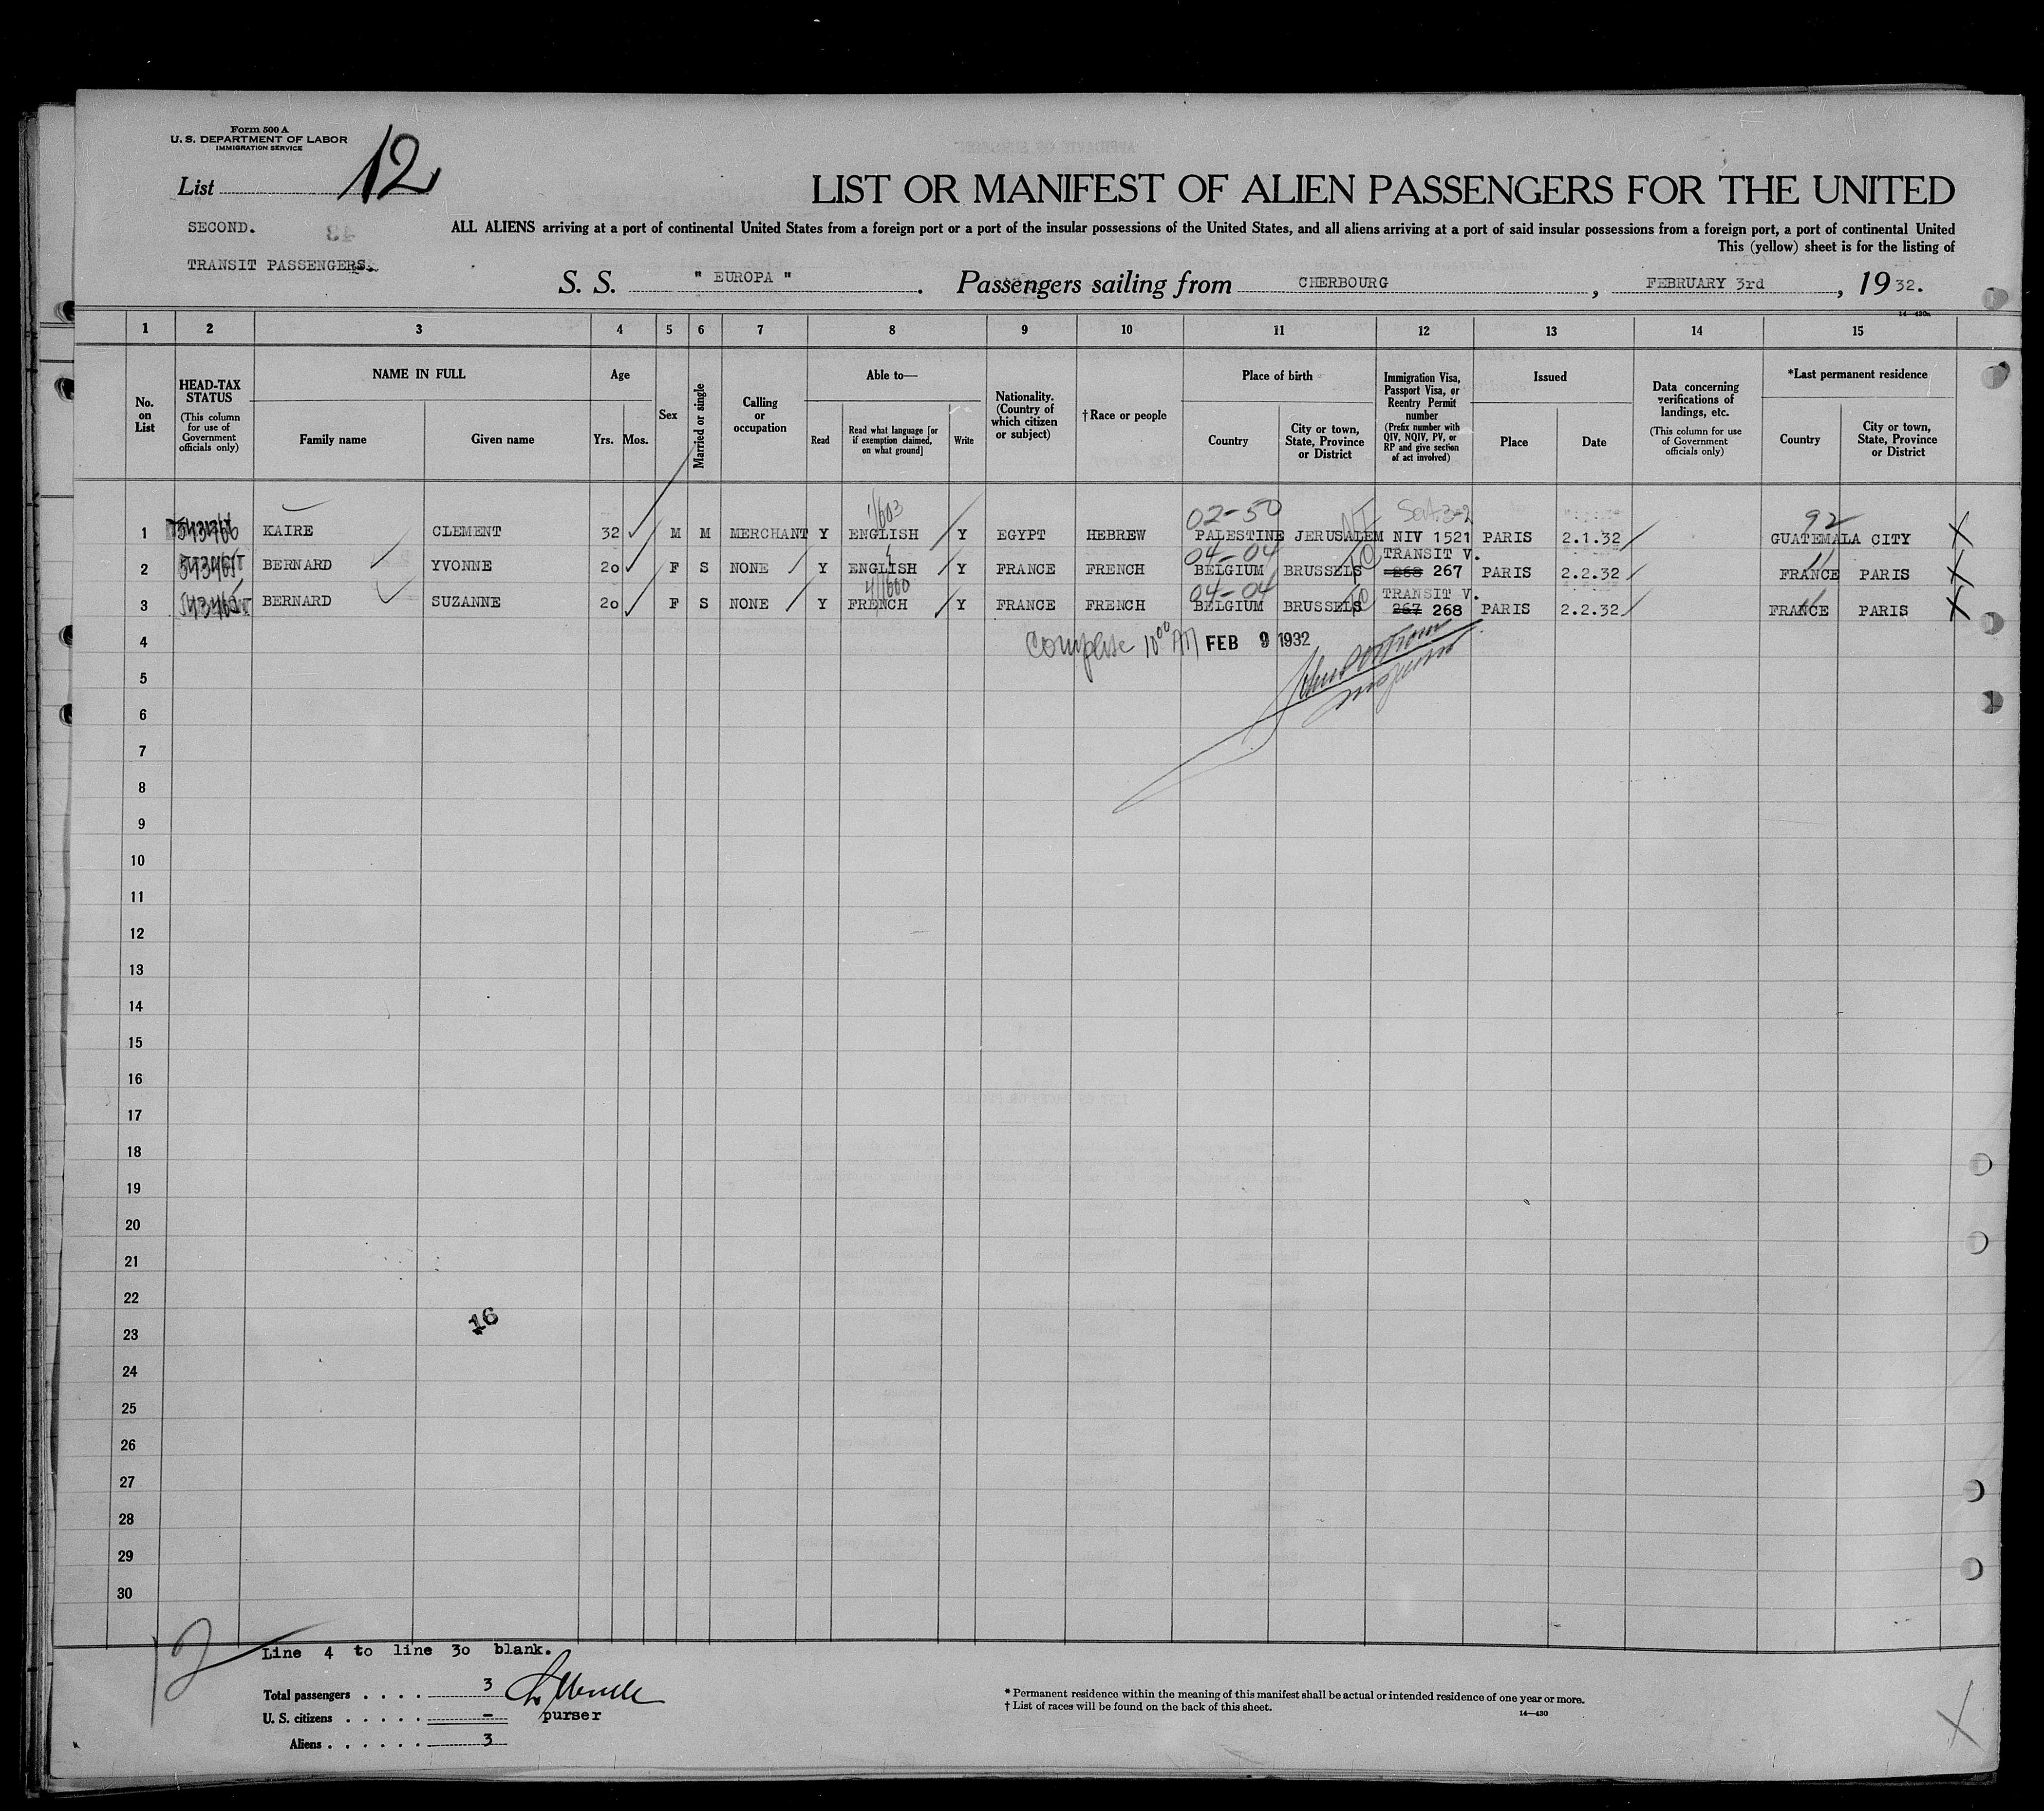 Form 500 A
U. S. DEPARTMENT OF LABOR
IMMIGRATION SERVICE
List 12
SECOND.
TRANSIT PASSENGERS.
LIST OR MANIFEST OF ALIEN PASSENGERS FOR THE UNITED
ALL ALIENS arriving at a port of continental United States from a foreign port or a port of the insular possessions of the United States, and all aliens arriving at a port of said insular possessions from a foreign port, a port of continental United
This (yellow) sheet is for the listing of
S. S. " EUROPA " . Passengers sailing from CHERBOURG , FEBRUARY 3rd , 19 32.
14—430a
1 2 3 4 5 6 7 8 9 10 11 12 13 14 15
No. on List
HEAD-TAX STATUS
(This column for use of Government officials only)
NAME IN FULL
Family name
Given name
Age
Yrs.
Mos.
Sex
Married or single
Calling or occupation
Able to—
Read
Read what language [or if exemption claimed, on what ground]
Write
Nationality. (Country of which citizen or subject)
†Race or people
Place of birth
Country
City or town, State, Province or District
Immigration Visa, Passport Visa, or Reentry Permit number
(Prefix number with QIV, NQIV, PV, or RP and give section of act involved)
Issued
Place
Date
Data concerning verifications of landings, etc.
(This column for use of Government officials only)
*Last permanent residence
Country
City or town, State, Province or District
1/603
02-50
92
1 KAIRE CLEMENT 32 M M MERCHANT Y ENGLISH Y EGYPT HEBREW PALESTINE JERUSALEM NIV 1521 PARIS 2.1.32 GUATEMALA CITY X
04-04 TRANSIT V.
2 BERNARD YVONNE 20 F S NONE Y ENGLISH Y FRANCE FRENCH BELGIUM BRUSSELS 268 267 PARIS 2.2.32 FRANCE PARIS X
4/600 04-04 TRANSIT V.
3 BERNARD SUZANNE 20 F S NONE Y FRENCH Y FRANCE FRENCH BELGIUM BRUSSELS 267 268 PARIS 2.2.32 FRANCE PARIS X
4 10 00 AM FEB 9 1932
5
6
7
8
9
10
11
12
13
14
15
16
17
18
19
20
21
22
16
23
24
25
26
27
28
29
30
Line 4 to line 30 blank.
Total passengers . . . . 3
U. S. citizens . . . . . –
purser
Aliens . . . . . . 3
* Permanent residence within the meaning of this manifest shall be actual or intended residence of one year or more.
† List of races will be found on the back of this sheet.
14—430